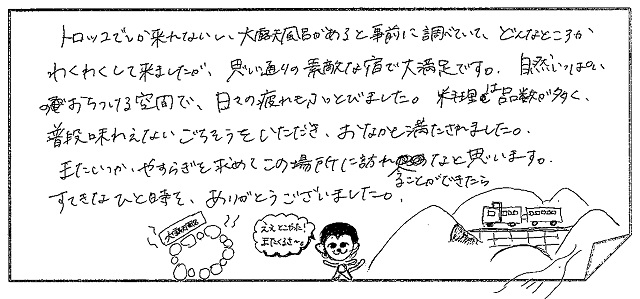 トロッコでしか来れないしい大露天風呂があると事前に調べていて、どんなところか
わくわくして来ましたが、思い通りの素敵な宿で大満足です。自然いっぱいの
おちつける空間で、日々の疲れもふっとびました。料理は品数が多く、
普段味わえないごちそうをいただき、おなかも満たされました。
またいつか、やすらぎを求めてこの場所に訪れることができたらなと思います。
すてきなひと時を、ありがとうございました。
大露天風呂
ええとこやった!
またくるさ〜。